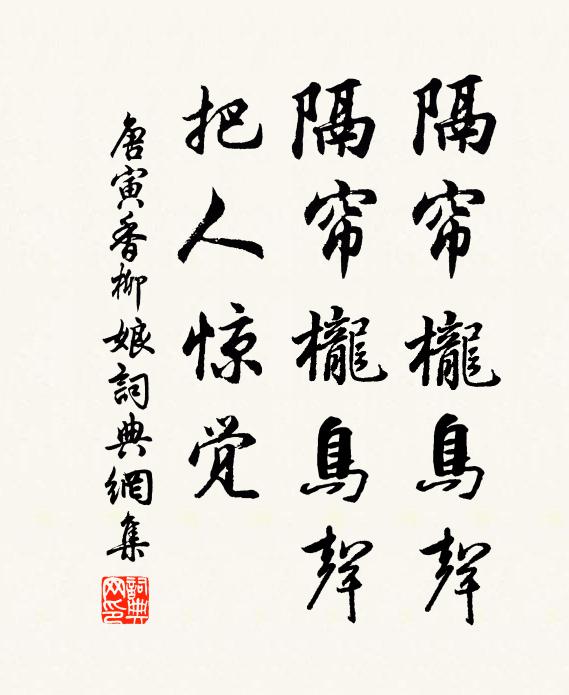 隔帘櫳鳥聲
隔帘櫳鳥聲
把人惊觉
唐寅香柳娘詞典網集
詞典网印